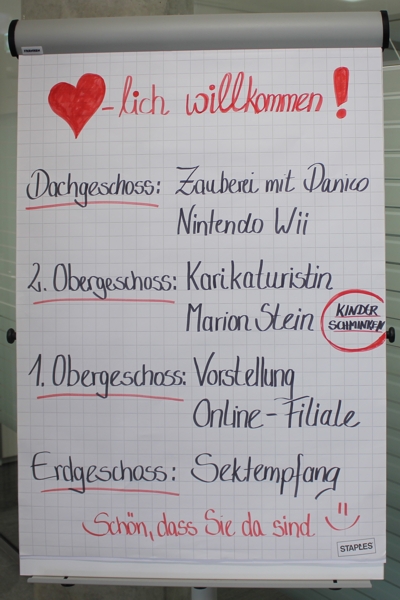 -lich willkommen!
Dachgeschoss: Zauberei mit Danico
Nintendo Wii
2. Obergeschoss: Karikaturistin
Marion Stein
KINDER
SCHMINKEN
1. Obergeschoss: Vorstellung
Online-Filiale
Erdgeschoss: Sektempfang
Schön, dass Sie da sind
STAPLES